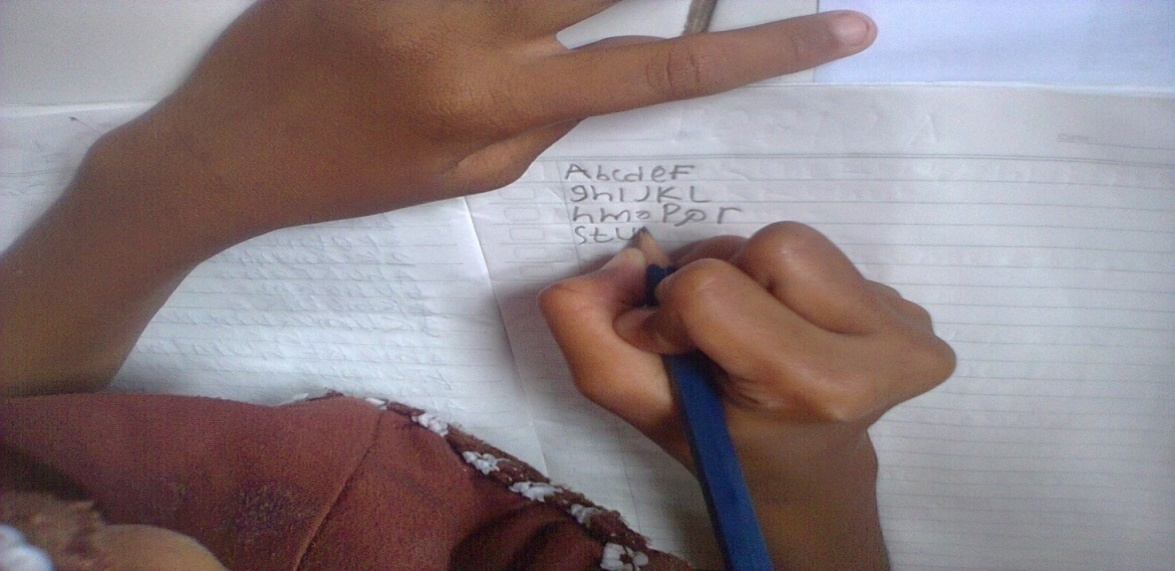 AbcdeF
ghIJKL
hmopqr
stu